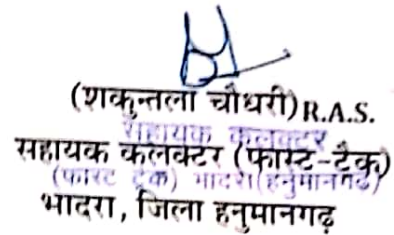 (शकुन्तला चौधरी) R.A.S.
सहायक कलक्टर
सहायक कलक्टर (फास्ट-टैक)
(फास्ट ट्रेक) भादरा (हनुमानगढ)
भादरा, जिला हनुमानगढ़